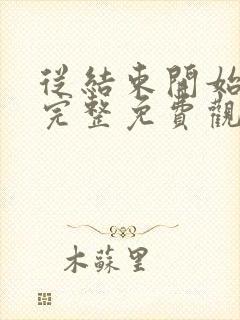 從結束開始
完整免費觀
木蘇里